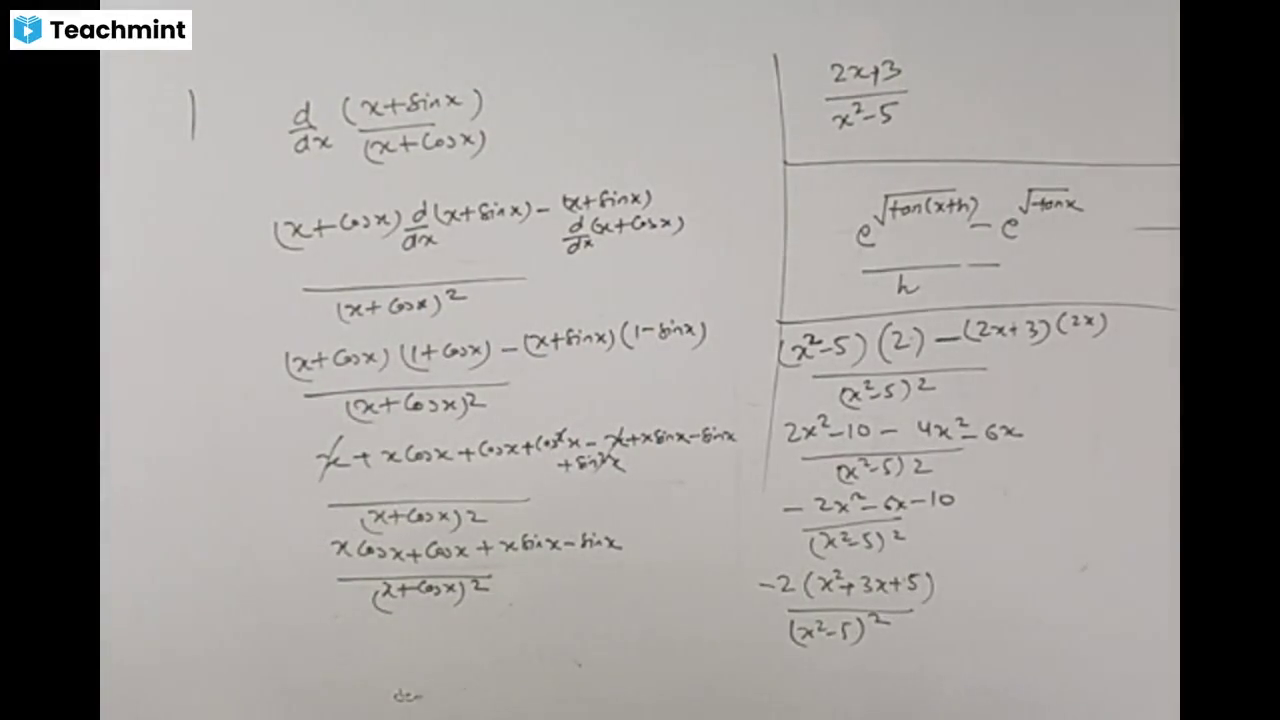 Teachmint
d/dx (x+sinx)/(x+cosx)
(x+cosx) d/dx (x+sinx) - (x+sinx)
d/dx (x+cosx)
(x+cosx)2
(x+cosx) (1+cosx) - (x+sinx) (1-sinx)
(x+cosx)2
x + x cosx + cosx + cos²x - x + x sinx - sinx
+ sin²x
(x+cosx)2
x cosx + cosx + x sinx - sinx
(x+cosx)2
2x+3
x²-5
e^√tan(x+h) - e^√tanx
h
(x²-5) (2) - (2x+3) (2x)
(x²-5)2
2x²-10 - 4x²-6x
(x²-5)2
- 2x²-6x-10
(x²-5)2
-2 (x²+3x+5)
(x²-5)2